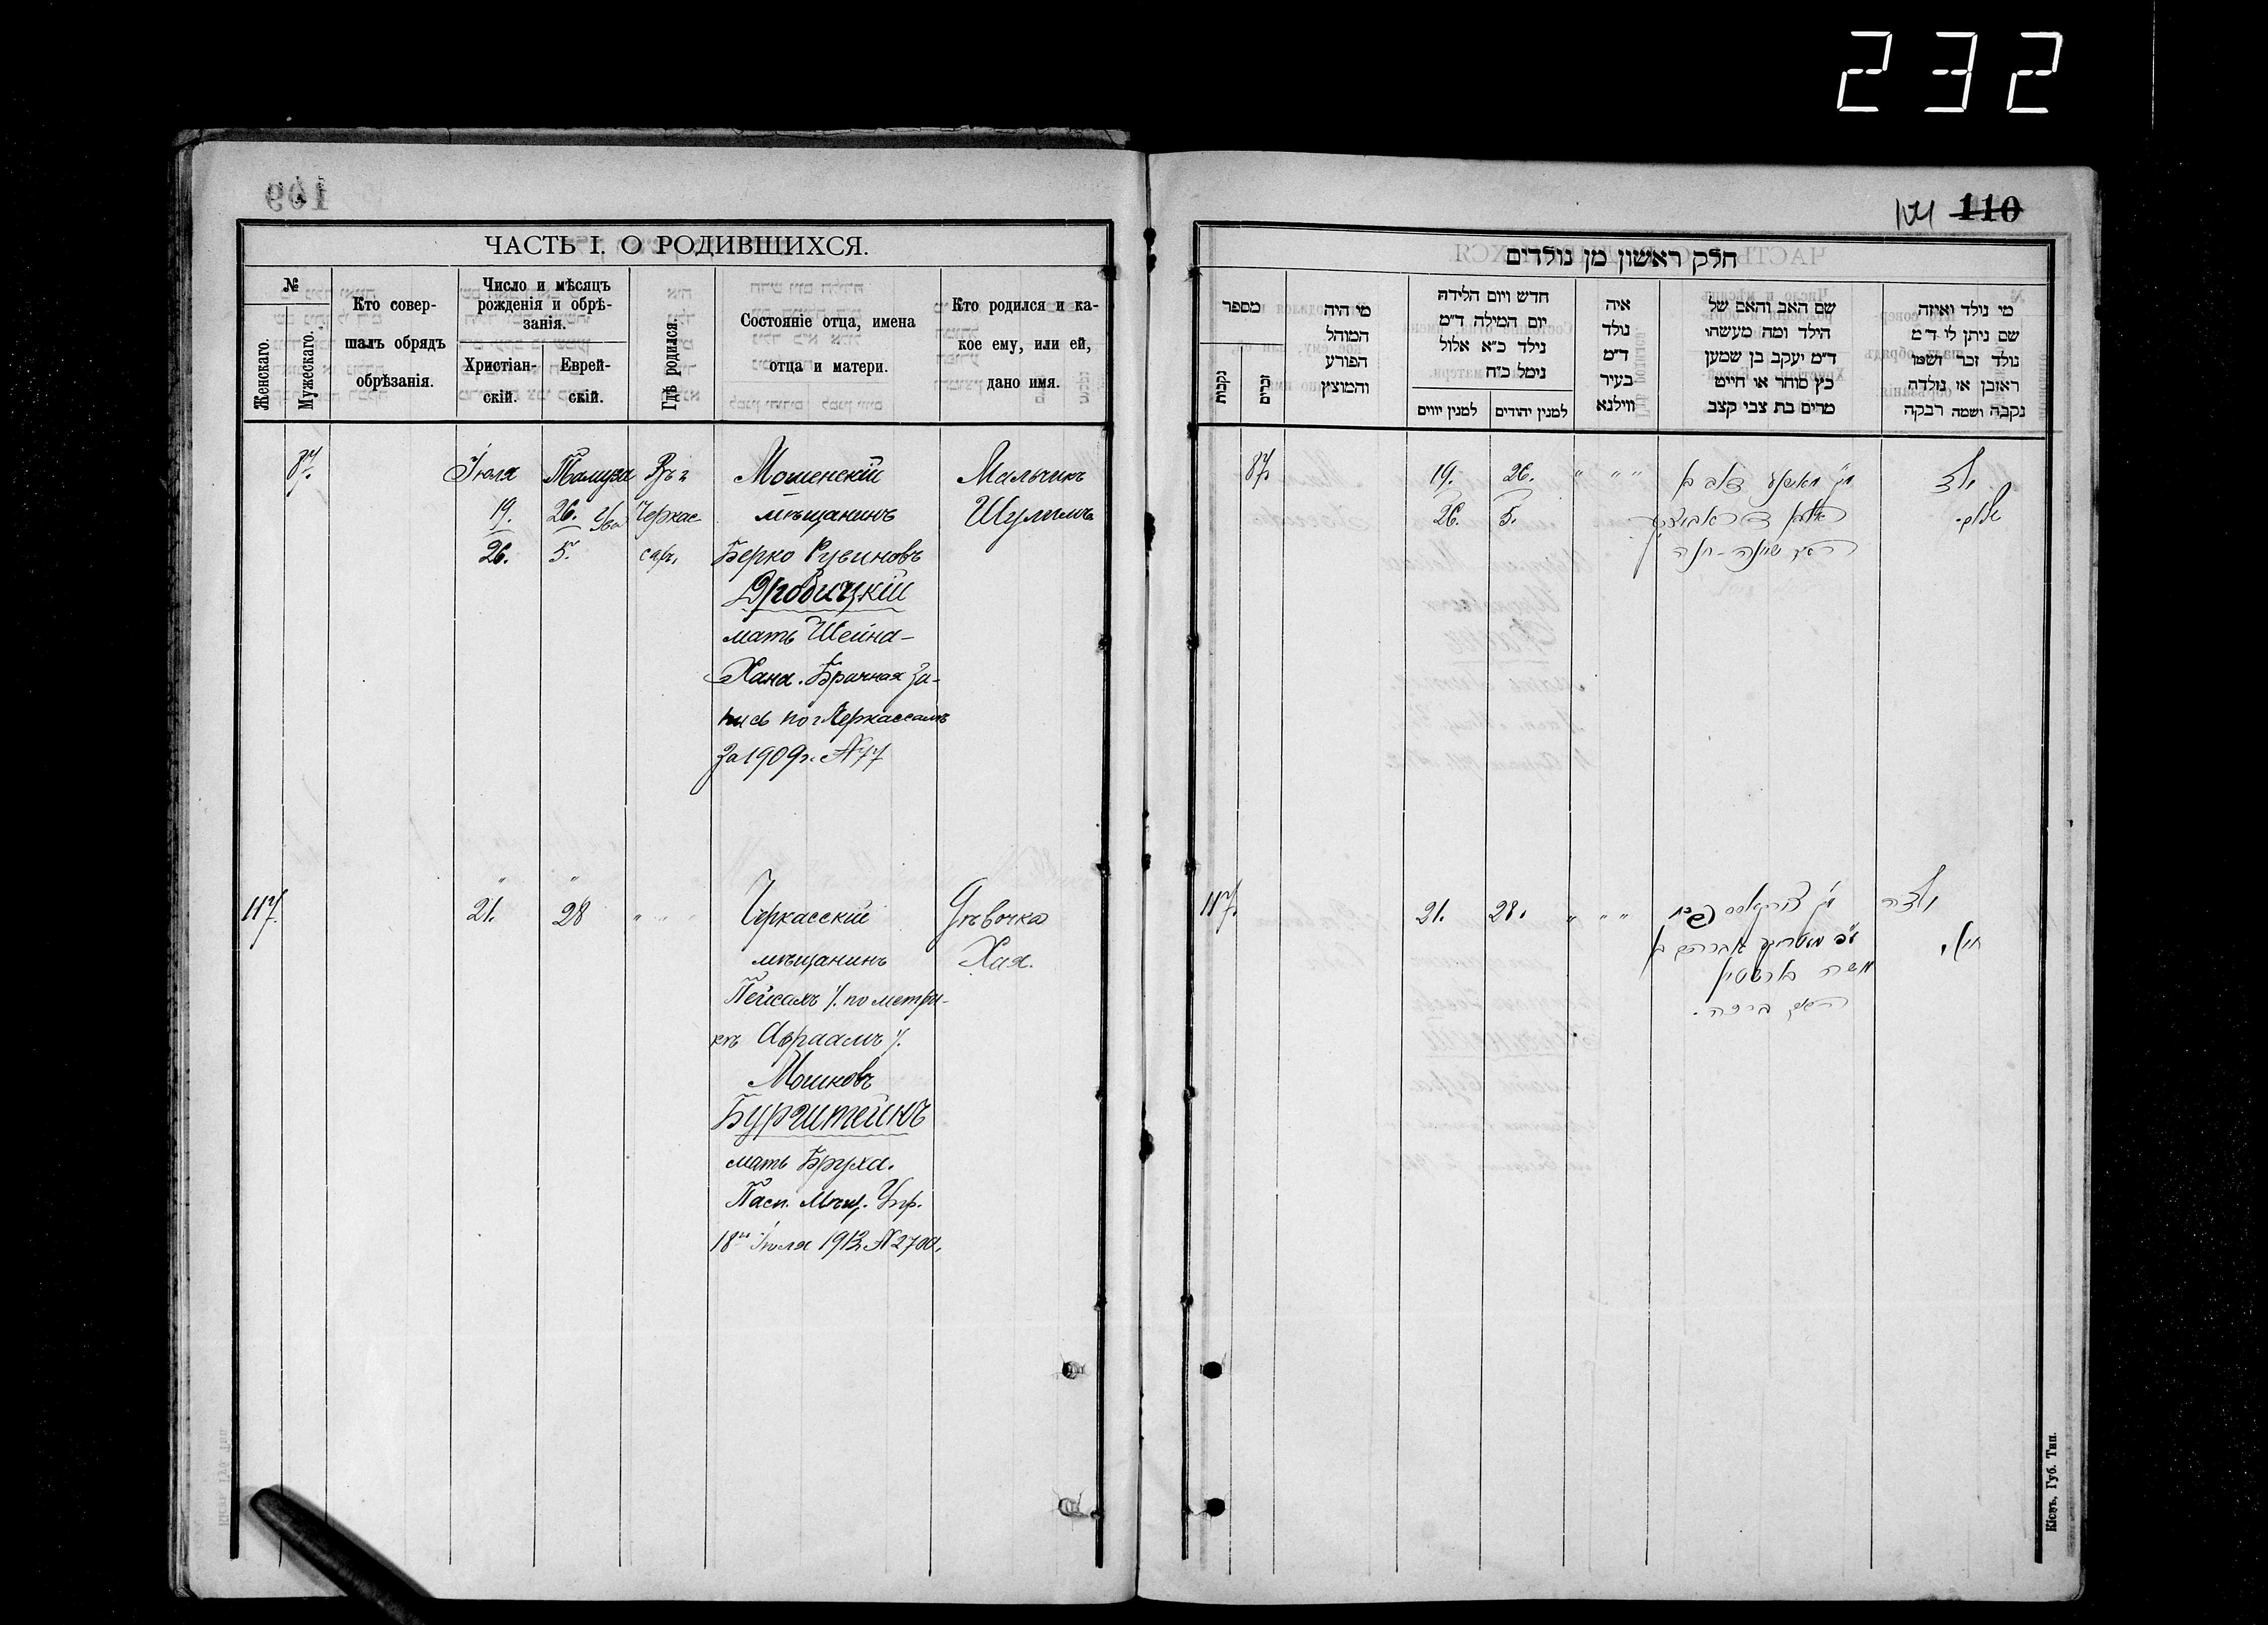 232
109
ЧАСТЬ I. О РОДИВШИХСЯ.
№
Женскаго.
Мужескаго.
Кто совер-
шалъ обрядъ
обрѣзанія.
Число и мѣсяцъ
рожденія и обрѣ-
занія.
Христіан-
скій.
Еврей-
скій.
Гдѣ родился.
Состояніе отца, имена
отца и матери.
Кто родился и ка-
кое ему, или ей,
дано имя.
87.
Іюля
19.
26.
Тамуза
26.
5.
Въ г
Черкас-
сахъ,
Мошенскій
мѣщанинъ
Берко Рувиновъ
Дробицкій
мать Шейна-
Хана. Брачная за-
пись по г Черкассамъ
за 1909 г. № 77
Мальчикъ
Шулимъ
117.
" 21.
" 28
" " "
Черкасскій
мѣщанинъ
Пейсахъ /. по метри-
кѣ Авраамъ /.
Мошковъ
Бурштейнъ
мать Бруха.
Пасп. Мѣщ. Упр.
18го Іюля 1912 № 2700.
Дѣвочка
Хая.
110
חלק ראשון מן נולדים
מספר
נקבות
זכרים
מי היה
המוהל
הפורע
והמוצץ
חדש ויום הלידה
יום המילה ד״מ
נילד כ״א אלול
נימל כ״ח
למנין יווים
למנין יהודים
איה
נולד
ד״מ
בעיר
ווילנא
שם האב והאם של
הילד ומה מעשהו
ד״מ יעקב בן שמען
כץ סוחר או חייט
מרים בת צבי קצב
מי נולד ואיזה
שם ניתן לו ד״מ
נולד זכר ושמו
ראובן או נולדה
נקבה ושמה רבקה
87.
19.
26.
26.
5.
" " "
ילד
שלום.
117.
21.
28.
" " "
משה בורשטיין
האם ברכה.
ילדה
חי׳
Кіевъ, Губ. Тип.